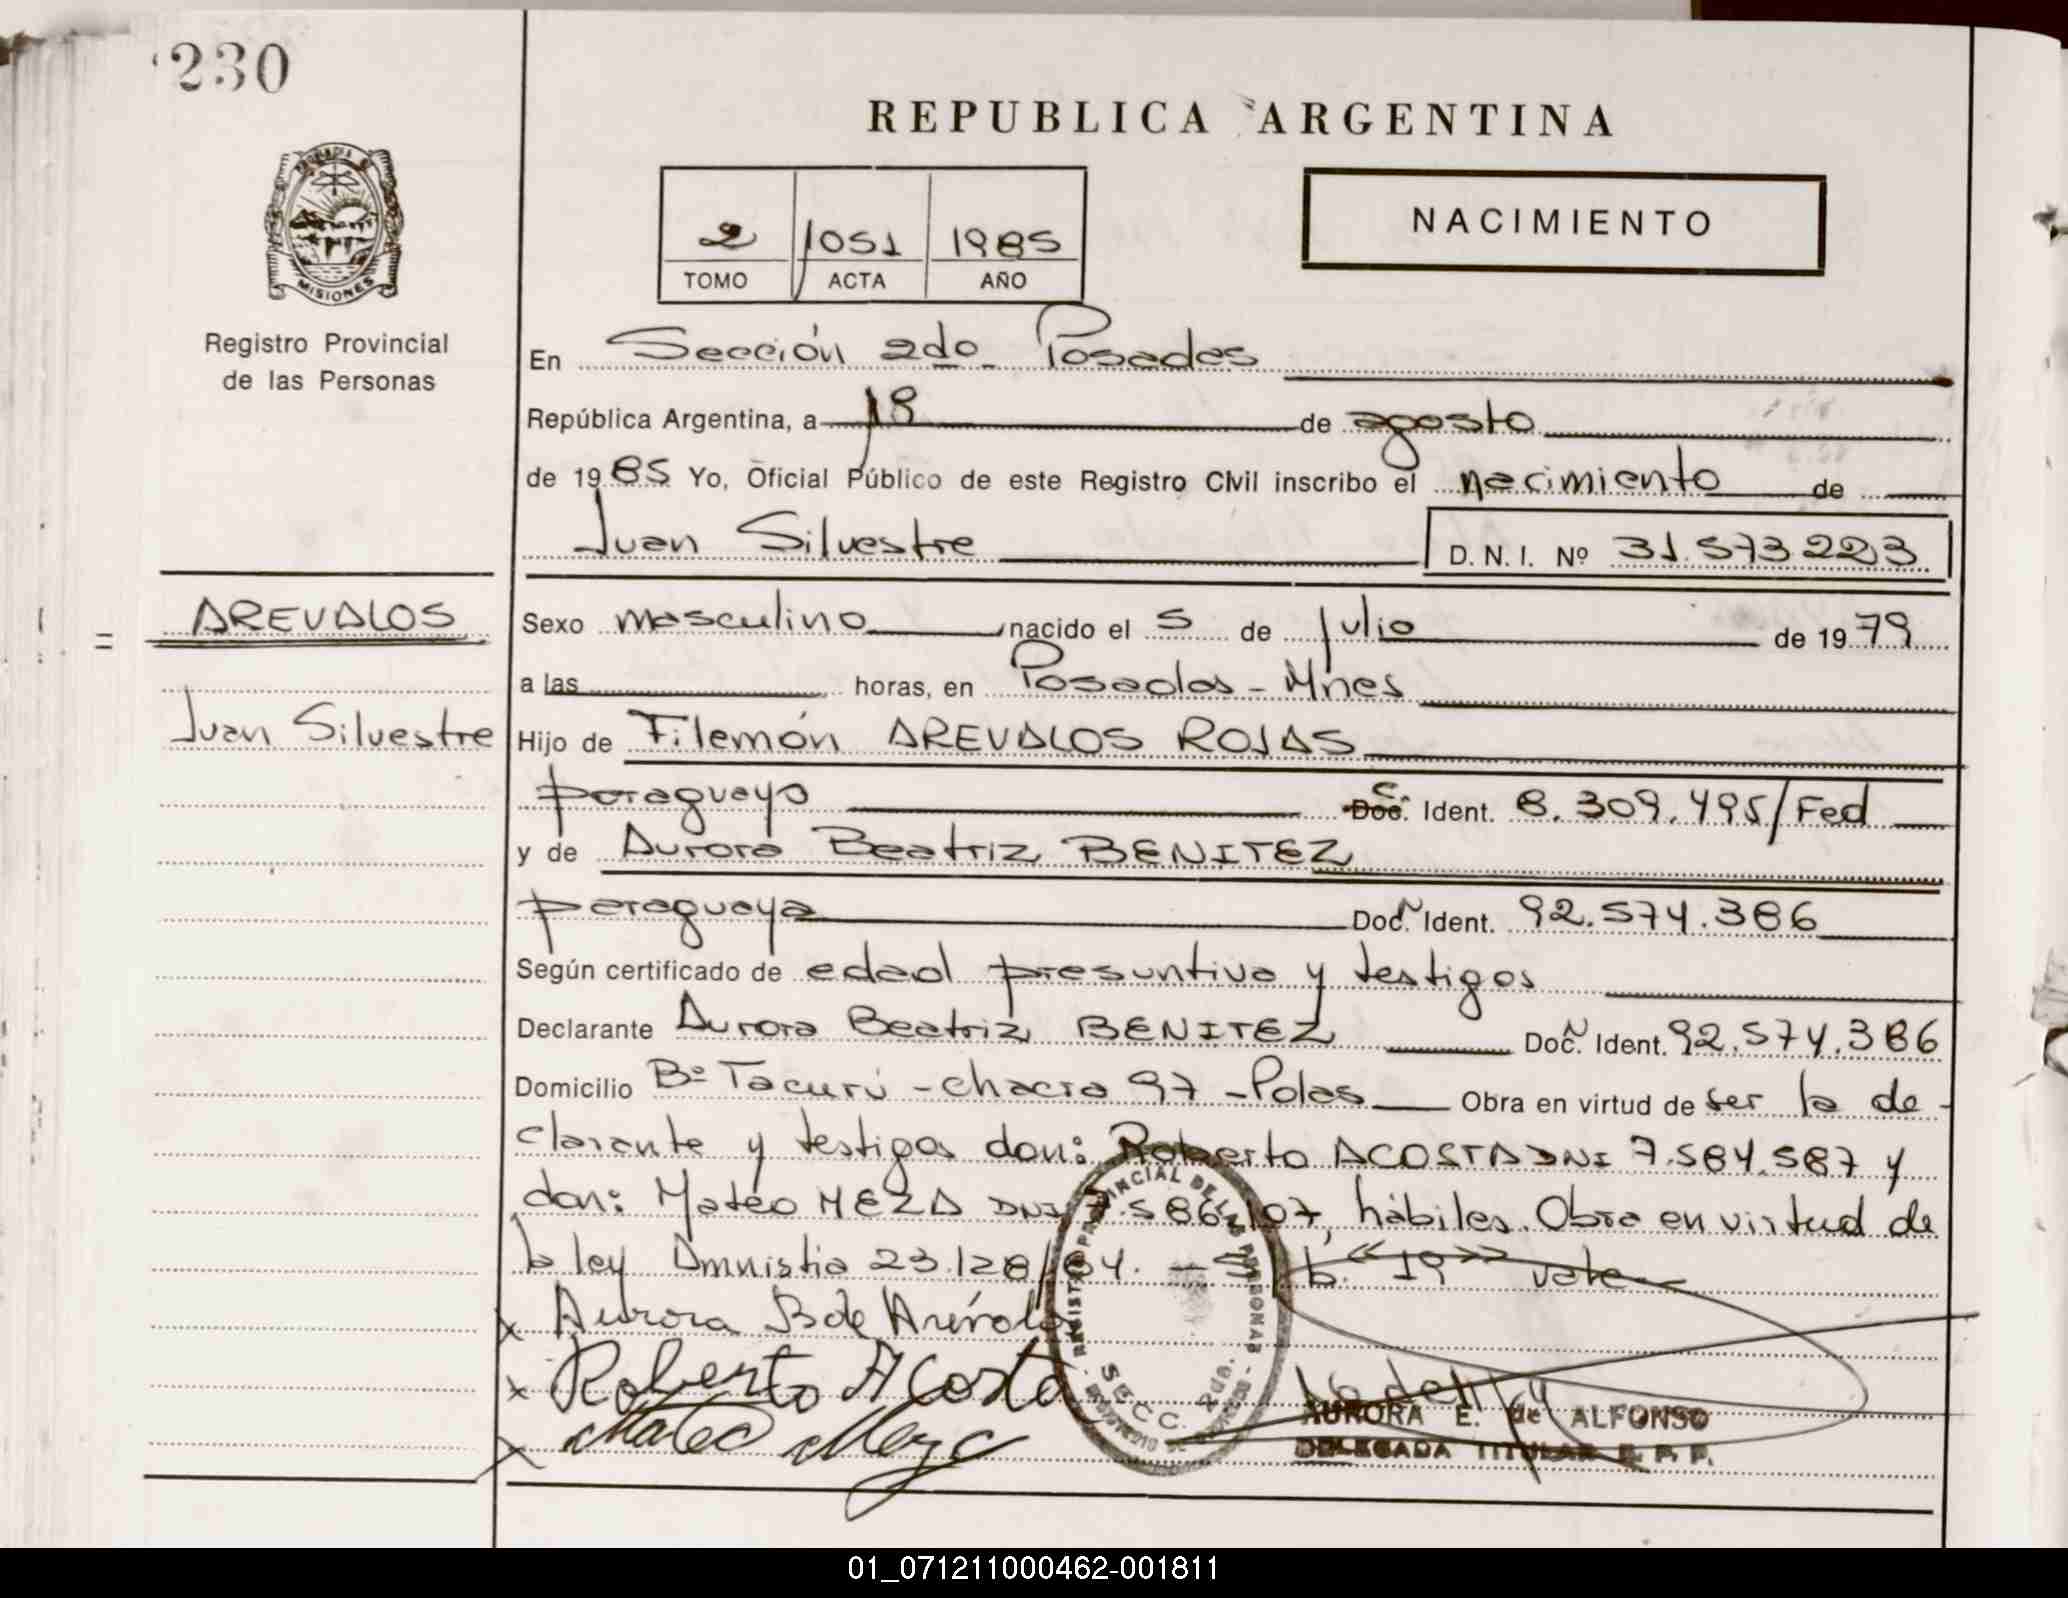 230
REPUBLICA ARGENTINA
NACIMIENTO
2 1051 1985
TOMO ACTA AÑO
MISIONES
Registro Provincial
de las Personas
En Sección 2da Posadas
República Argentina, a 19 de agosto
de 1985 Yo, Oficial Público de este Registro Civil inscribo el nacimiento de
Juan Silvestre D. N. I. Nº 31.573.223
AREVALOS
Juan Silvestre
Sexo masculino nacido el 5 de julio de 1979
a las horas, en Posadas - Mnes
Hijo de Filemón AREVALOS ROJAS
paraguayo C. Doc. Ident. 8.309.495/Fed
y de Aurora Beatriz BENITEZ
paraguaya Doc. Ident. 92.574.386
Según certificado de edad presuntiva y testigos
Declarante Aurora Beatriz BENITEZ Doc. Ident. 92.574.386
Domicilio Bº Tacurú - chacra 97 - Pdas Obra en virtud de ser la de-
clarante y testigos don: Roberto ACOSTA DNI 7.584.587 y
don: Mateo MEZA DNI 7.586.107, hábiles. Obra en virtud de
la ley Amnistia 23.128/84. - "19" vale
Aurora B de Arévalo
Roberto Acosta
Mateo Meza
REGISTRO PROVINCIAL DE LAS PERSONAS
SECC. 2da.
AURORA E. de ALFONSO
DELEGADA TITULAR R. P. P.
01_071211000462-001811